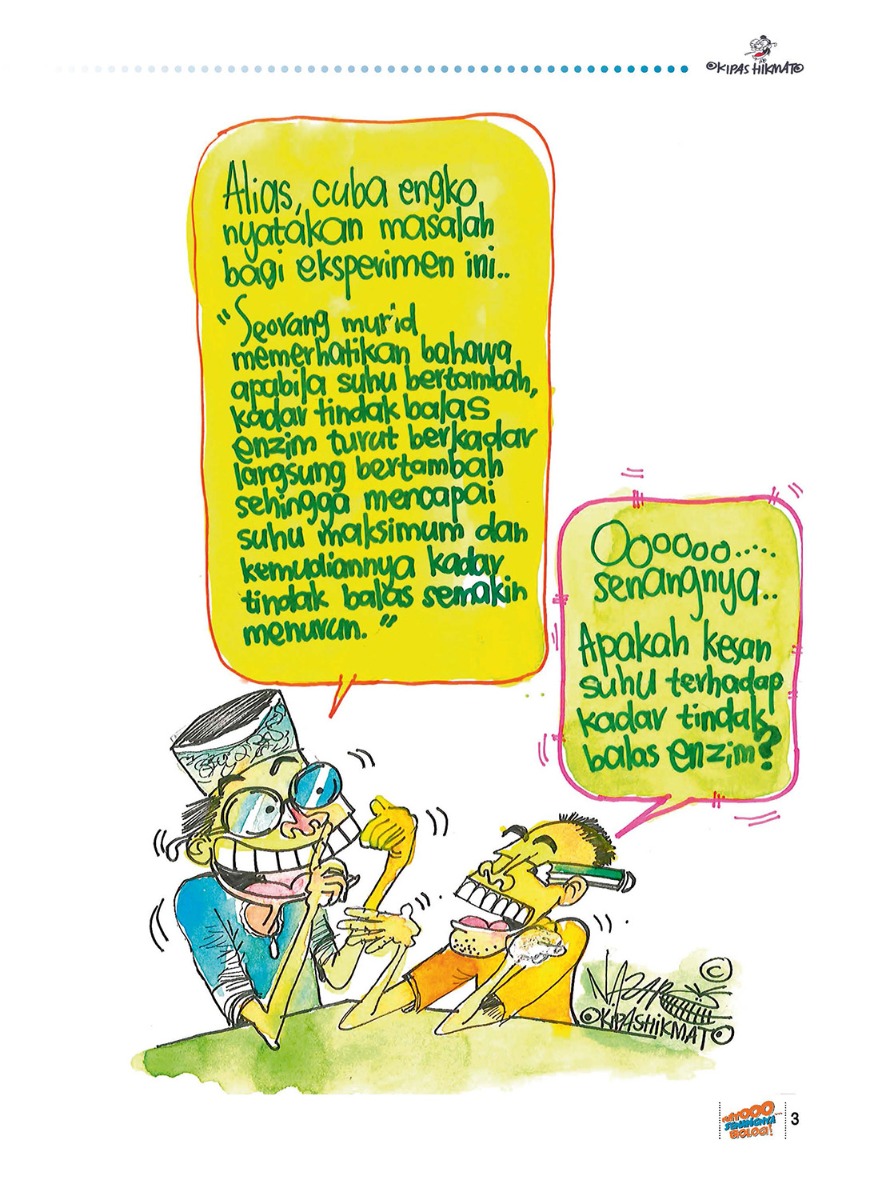 ©KIPASHIKMATO
Alias, cuba engko
nyatakan masalah
bagi eksperimen ini..
"Seorang murid
memerhatikan bahawa
apabila suhu bertambah,
kadar tindak balas
enzim turut berkadar
langsung bertambah
sehingga mencapai
suhu maksimum dan
kemudiannya kadar
tindak balas semakin
menurun."
Oooooo.....
senangnya..
Apakah kesan
suhu terhadap
kadar tindak
balas enzim?
©
©KIPASHIKMATO
SENANGNYA
BIOLOGI!
3